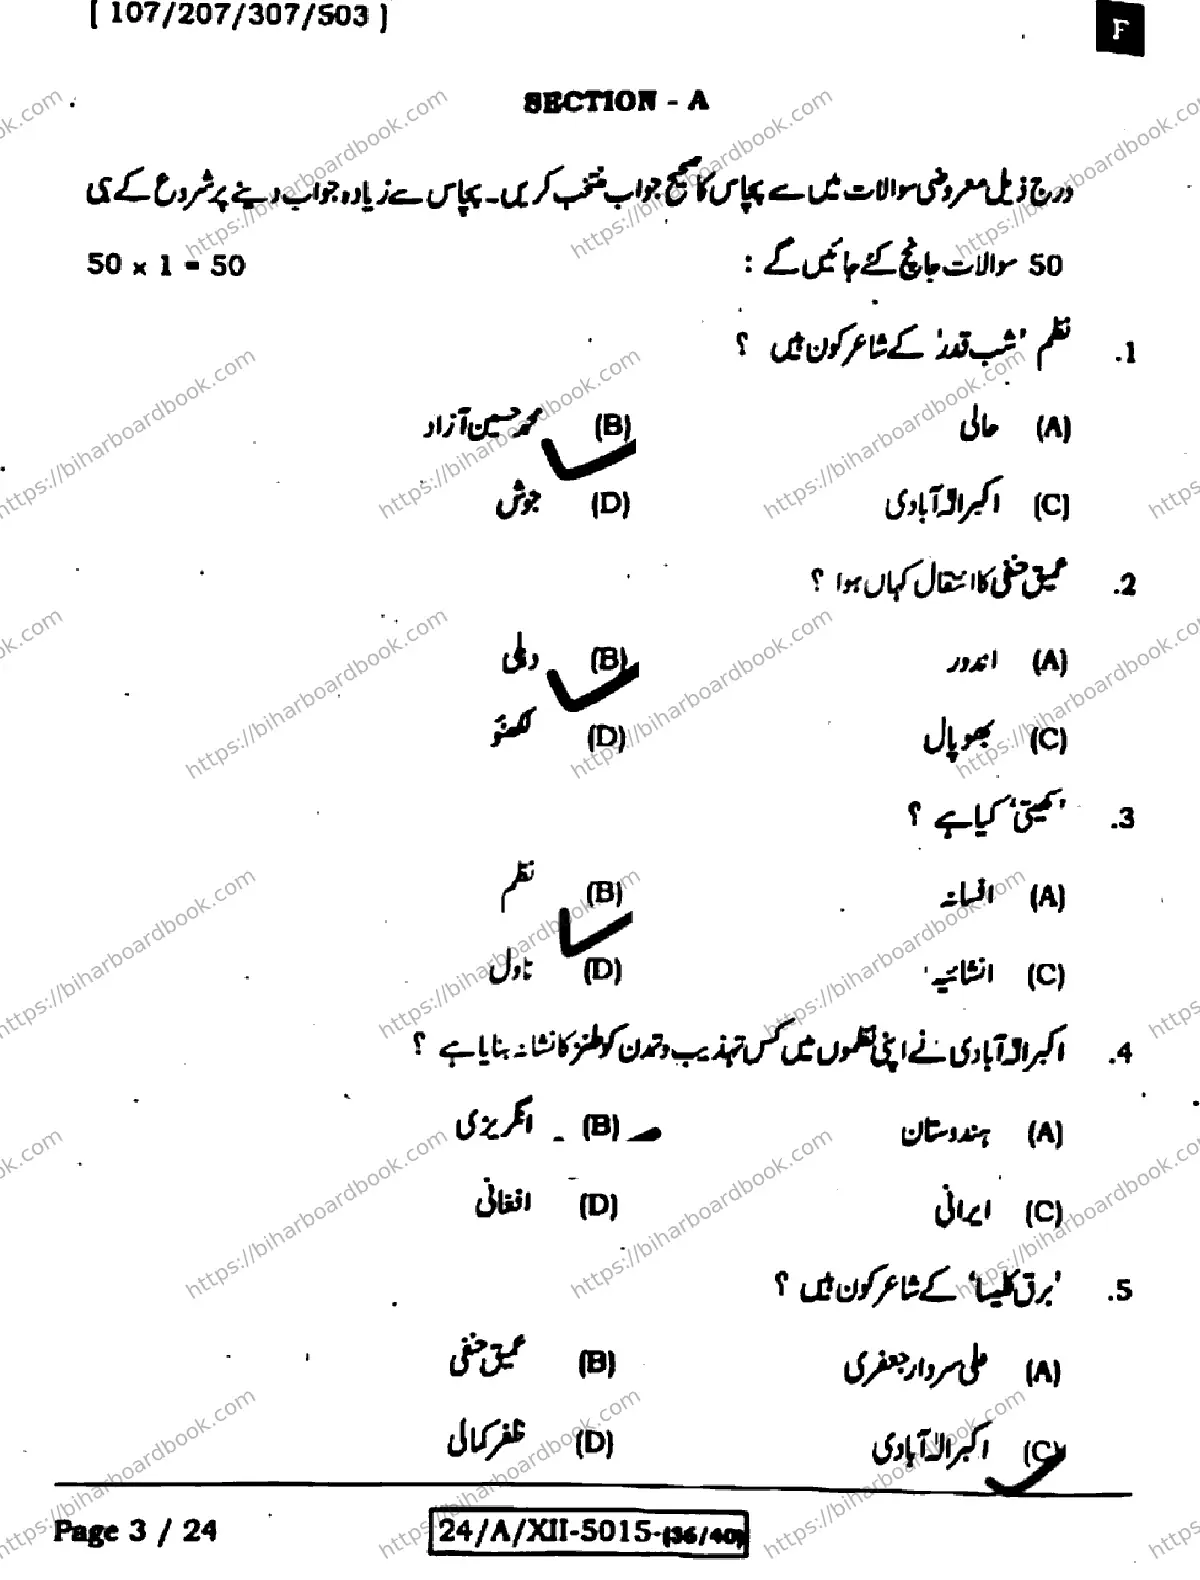 [ 107/207/307/503 ]
F
SECTION - A
درج ذیل معروضی سوالات میں سے پچاس کا صحیح جواب منتخب کریں۔ پچاس سے زیادہ جواب دینے پر شروع کے ہی
50 سوالات جانچ کئے جائیں گے : 50 x 1 = 50
1. نظم 'شب قدر' کے شاعر کون ہیں ؟
(A) حالی (B) محمد حسین آزاد
(C) اکبر الہٰ آبادی (D) جوش
2. عمیق حنفی کا انتقال کہاں ہوا ؟
(A) اندور (B) دہلی
(C) بھوپال (D) لکھنؤ
3. 'کھیتی' کیا ہے ؟
(A) افسانہ (B) نظم
(C) انشائیہ (D) ناول
4. اکبر الہٰ آبادی نے اپنی نظموں میں کس تہذیب و تمدن کو طنز کا نشانہ بنایا ہے ؟
(A) ہندوستان (B) انگریزی
(C) ایرانی (D) افغانی
5. 'برق کلیسا' کے شاعر کون ہیں ؟
(A) علی سردار جعفری (B) عمیق حنفی
(C) اکبر الہٰ آبادی (D) ظفر کمالی
Page 3 / 24
24/A/XII-5015-(36/40)
https://biharboardbook.com